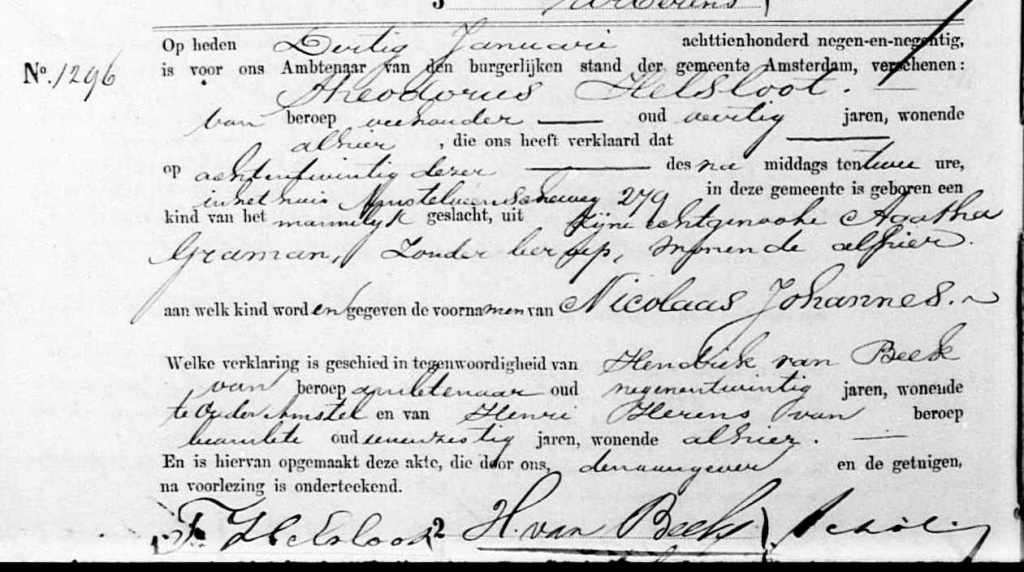 Op heden Dertig Januarie achttienhonderd negen-en-negentig,
No. 1296
is voor ons Ambtenaar van den burgerlijken stand der gemeente Amsterdam, verschenen:
Theodorus Helsloot.
van beroep veehouder oud veertig jaren, wonende
alhier, die ons heeft verklaard dat
op achtentwintig dezer des na middags ten twee ure,
in het huis Amstelveenscheweg 279 in deze gemeente is geboren een
kind van het mannelijk geslacht, uit zijne echtgenoote Agatha
Graman, zonder beroep, wonende alhier.
aan welk kind worden gegeven de voornamen van Nicolaas Johannes.
Welke verklaring is geschied in tegenwoordigheid van Hendrik van Beek
van beroep ambtenaar oud negenentwintig jaren, wonende
te Ouder Amstel en van Henri Herens van beroep
beambte oud zestig jaren, wonende alhier.
En is hiervan opgemaakt deze akte, die door ons, den aangever en de getuigen,
na voorlezing is onderteekend.
T. Helsloot 2 H. van Beek